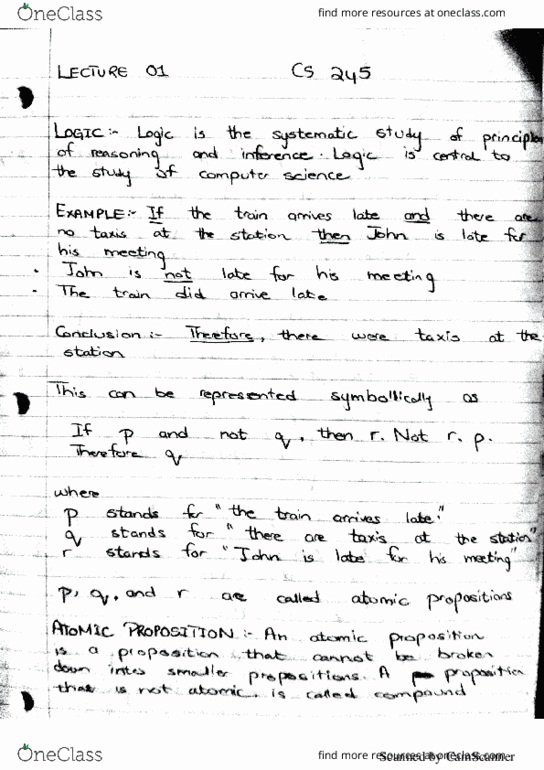 OneClass
find more resources at oneclass.com
LECTURE 01 CS 245
LOGIC:- Logic is the systematic study of principle
of reasoning and inference. Logic is central to
the study of computer science
EXAMPLE:- If the train arrives late and there are
no taxis at the station then John is late for
his meeting
. John is not late for his meeting
- The train did arrive late
Conclusion:- Therefore, there were taxis at the
station
This can be represented symbollically as
If p and not q, then r. Not r. p.
Therefore q
where
p stands for "the train arrives late."
q stands for "there are taxis at the station"
r stands for "John is late for his meeting"
p, q, and r are called atomic propositions
ATOMIC PROPOSITION:- An atomic proposition
is a proposition that cannot be broken
down into smaller propositions. A proposition
that is not atomic, is called compound
OneClass
find more resources at oneclass.com
Scanned by CamScanner